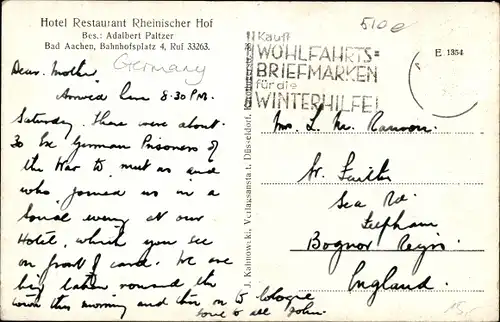 Hotel Restaurant Rheinischer Hof
Bes.: Adalbert Paltzer
Bad Aachen, Bahnhofsplatz 4, Ruf 33263.
Germany
Dear Mother,
Arrived here 8-30 P.M.
Saturday. There were about
30 Ex German Prisoners of
the War to meet us and
who joined us in a
Social evening at our
Hotel, which you see
on front of card. We are
being taken round the
town this morning and then on to Cologne
Love to all John.
J. Kahnowski, Verlagsanstalt, Düsseldorf,
510
Kauft
WOHLFAHRTS=
BRIEFMARKEN
für die
WINTERHILFE!
E 1354
Mrs. L. M.
St. Faiths
Sea Rd.
Felpham
Bognor Regis
England.
15,-